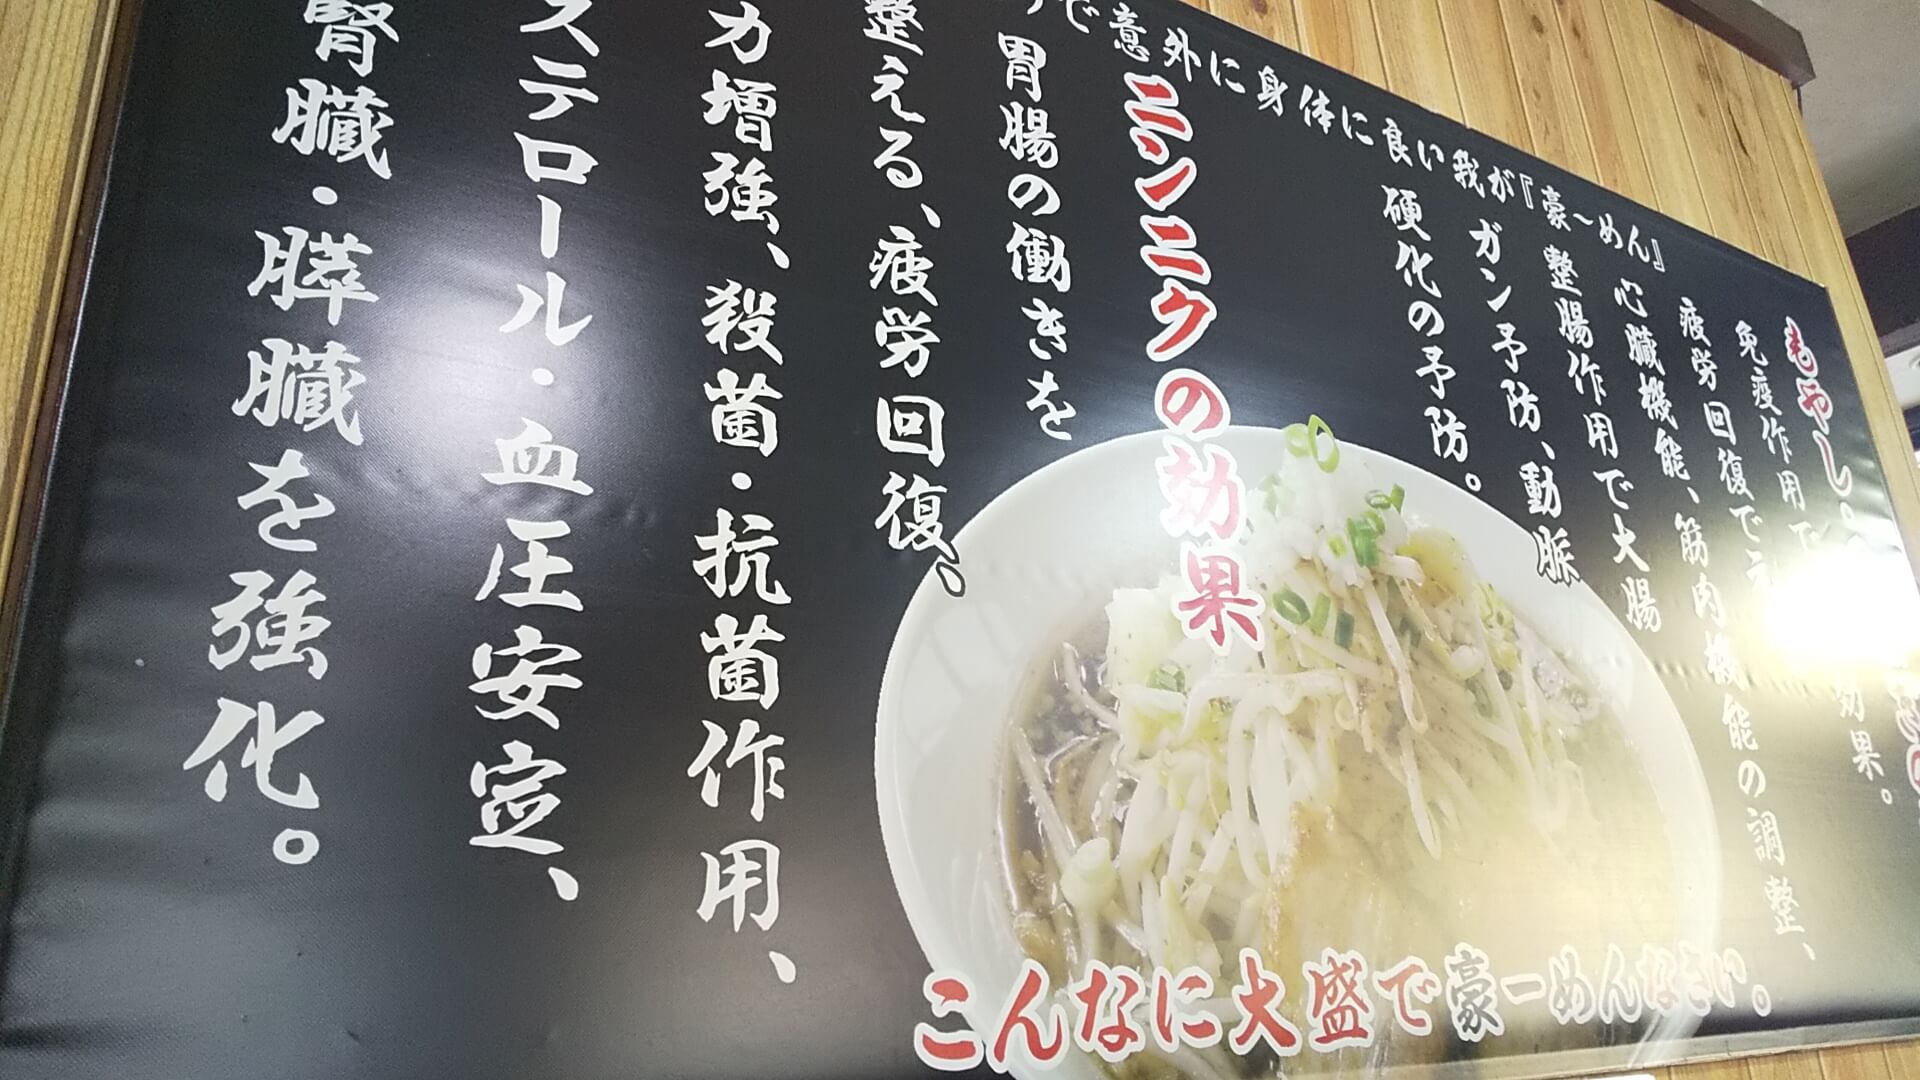 で意外に身体に良い我が『豪〜めん』
もやし。
効果。
免疫作用で
疲労回復で
心臓機能、筋肉機能の調整、
整腸作用で大腸
ガン予防、動脈
硬化の予防。
ニンニクの効果
胃腸の働きを
整える、疲労回復。
力増強、殺菌・抗菌作用、
ステロール・血圧安定、
腎臓・膵臓を強化。
こんなに大盛で豪ーめんなさい。